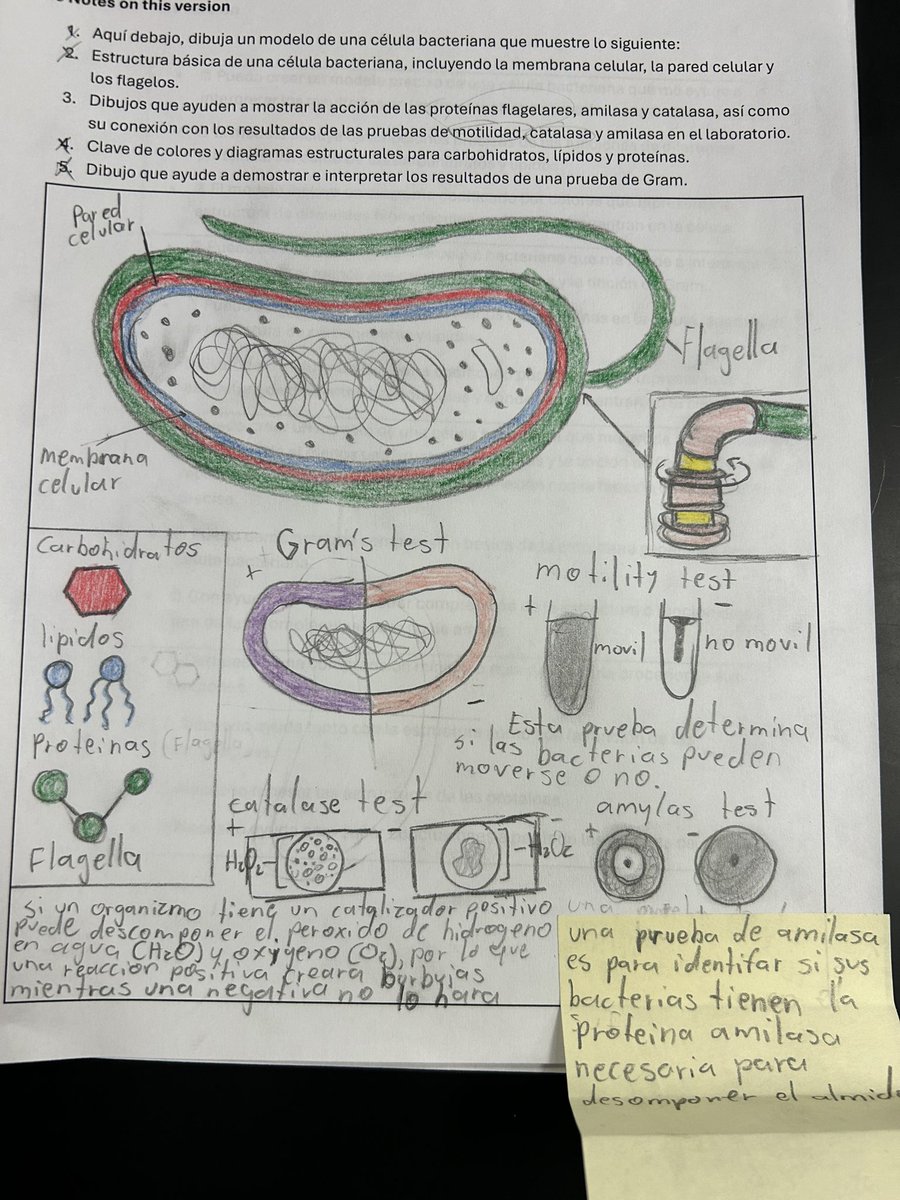 Notes on this version
1. Aquí debajo, dibuja un modelo de una célula bacteriana que muestre lo siguiente:
2. Estructura básica de una célula bacteriana, incluyendo la membrana celular, la pared celular y
los flagelos.
3. Dibujos que ayuden a mostrar la acción de las proteínas flagelares, amilasa y catalasa, así como
su conexión con los resultados de las pruebas de motilidad, catalasa y amilasa en el laboratorio.
4. Clave de colores y diagramas estructurales para carbohidratos, lípidos y proteínas.
5. Dibujo que ayude a demostrar e interpretar los resultados de una prueba de Gram.
Pared
celular
Flagella
membrana
celular
Carbohidratos
lipidos
Proteinas (Flagella
Flagella
Gram's test
+
-
motility test
+ -
movil
no movil
Esta prueba determina
si las bacterias pueden
moverse o no.
catalase test
+ -
H₂O₂
H₂O₂
amylas test
+ -
Si un organizmo tiene un catalizador positivo
puede descomponer el peroxido de hidrogeno
en agua (H₂O) y oxygeno (O₂), por lo que
una reaccion positiva creara burbujas
mientras una negativa no lo hara
una
una prueba de amilasa
es para identifar si sus
bacterias tienen la
proteina amilasa
necesaria para
desomponer el almid